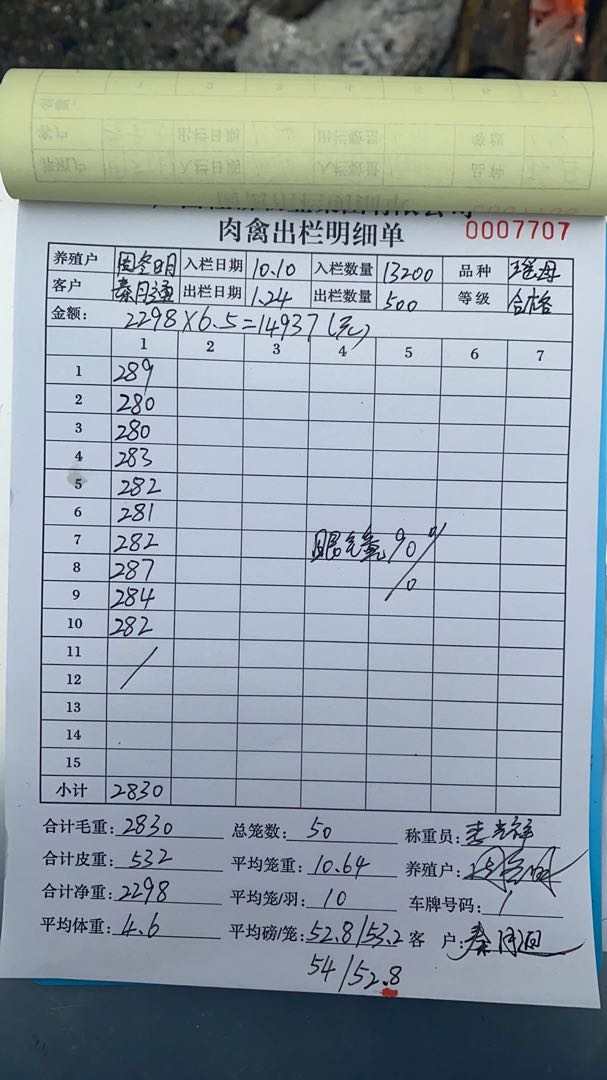 肉禽出栏明细单 0007707
养殖户 周冬明 入栏日期 10.10 入栏数量 13200 品种 瑶母
客户 秦月通 出栏日期 1.24 出栏数量 500 等级 合格
金额: 2298×6.5=14937(元)
1 2 3 4 5 6 7
1 289
2 280
3 280
4 283
5 282
6 281
7 282
8 287
9 284
10 282
11
12
13
14
15
小计 2830
合计毛重: 2830 总笼数: 50 称重员:
合计皮重: 532 平均笼重: 10.64 养殖户:
合计净重: 2298 平均笼/羽: 10 车牌号码: /
平均体重: 4.6 平均磅/笼: 52.8/53.2 客 户: 秦月通
54/52.8